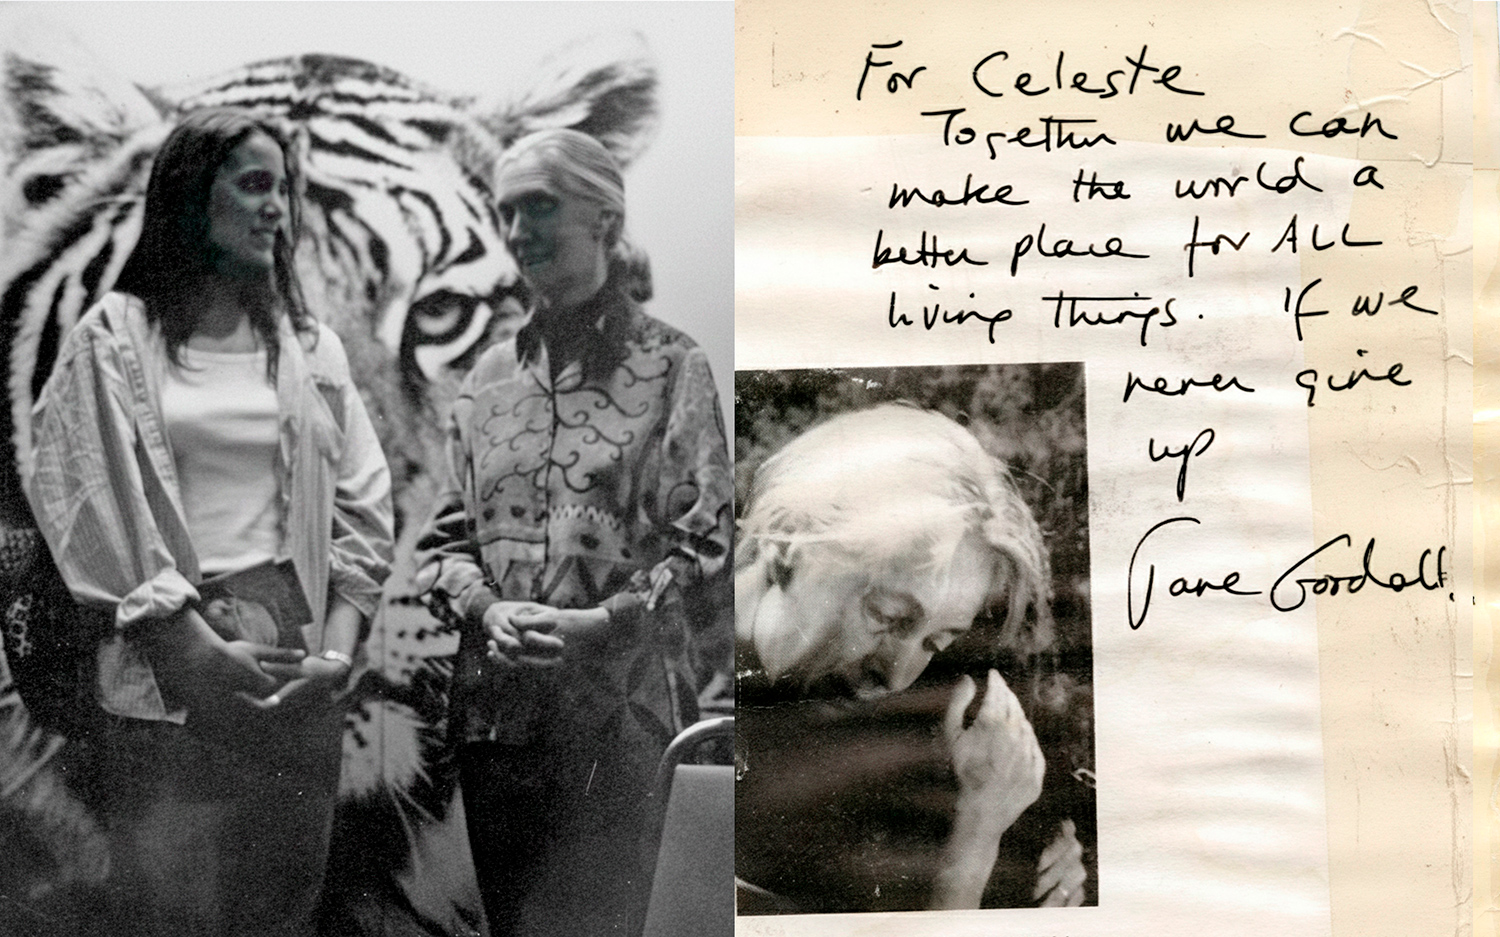 For Celeste
Together we can
make the world a
better place for ALL
living things. If we
never give
up
Jane Goodall.